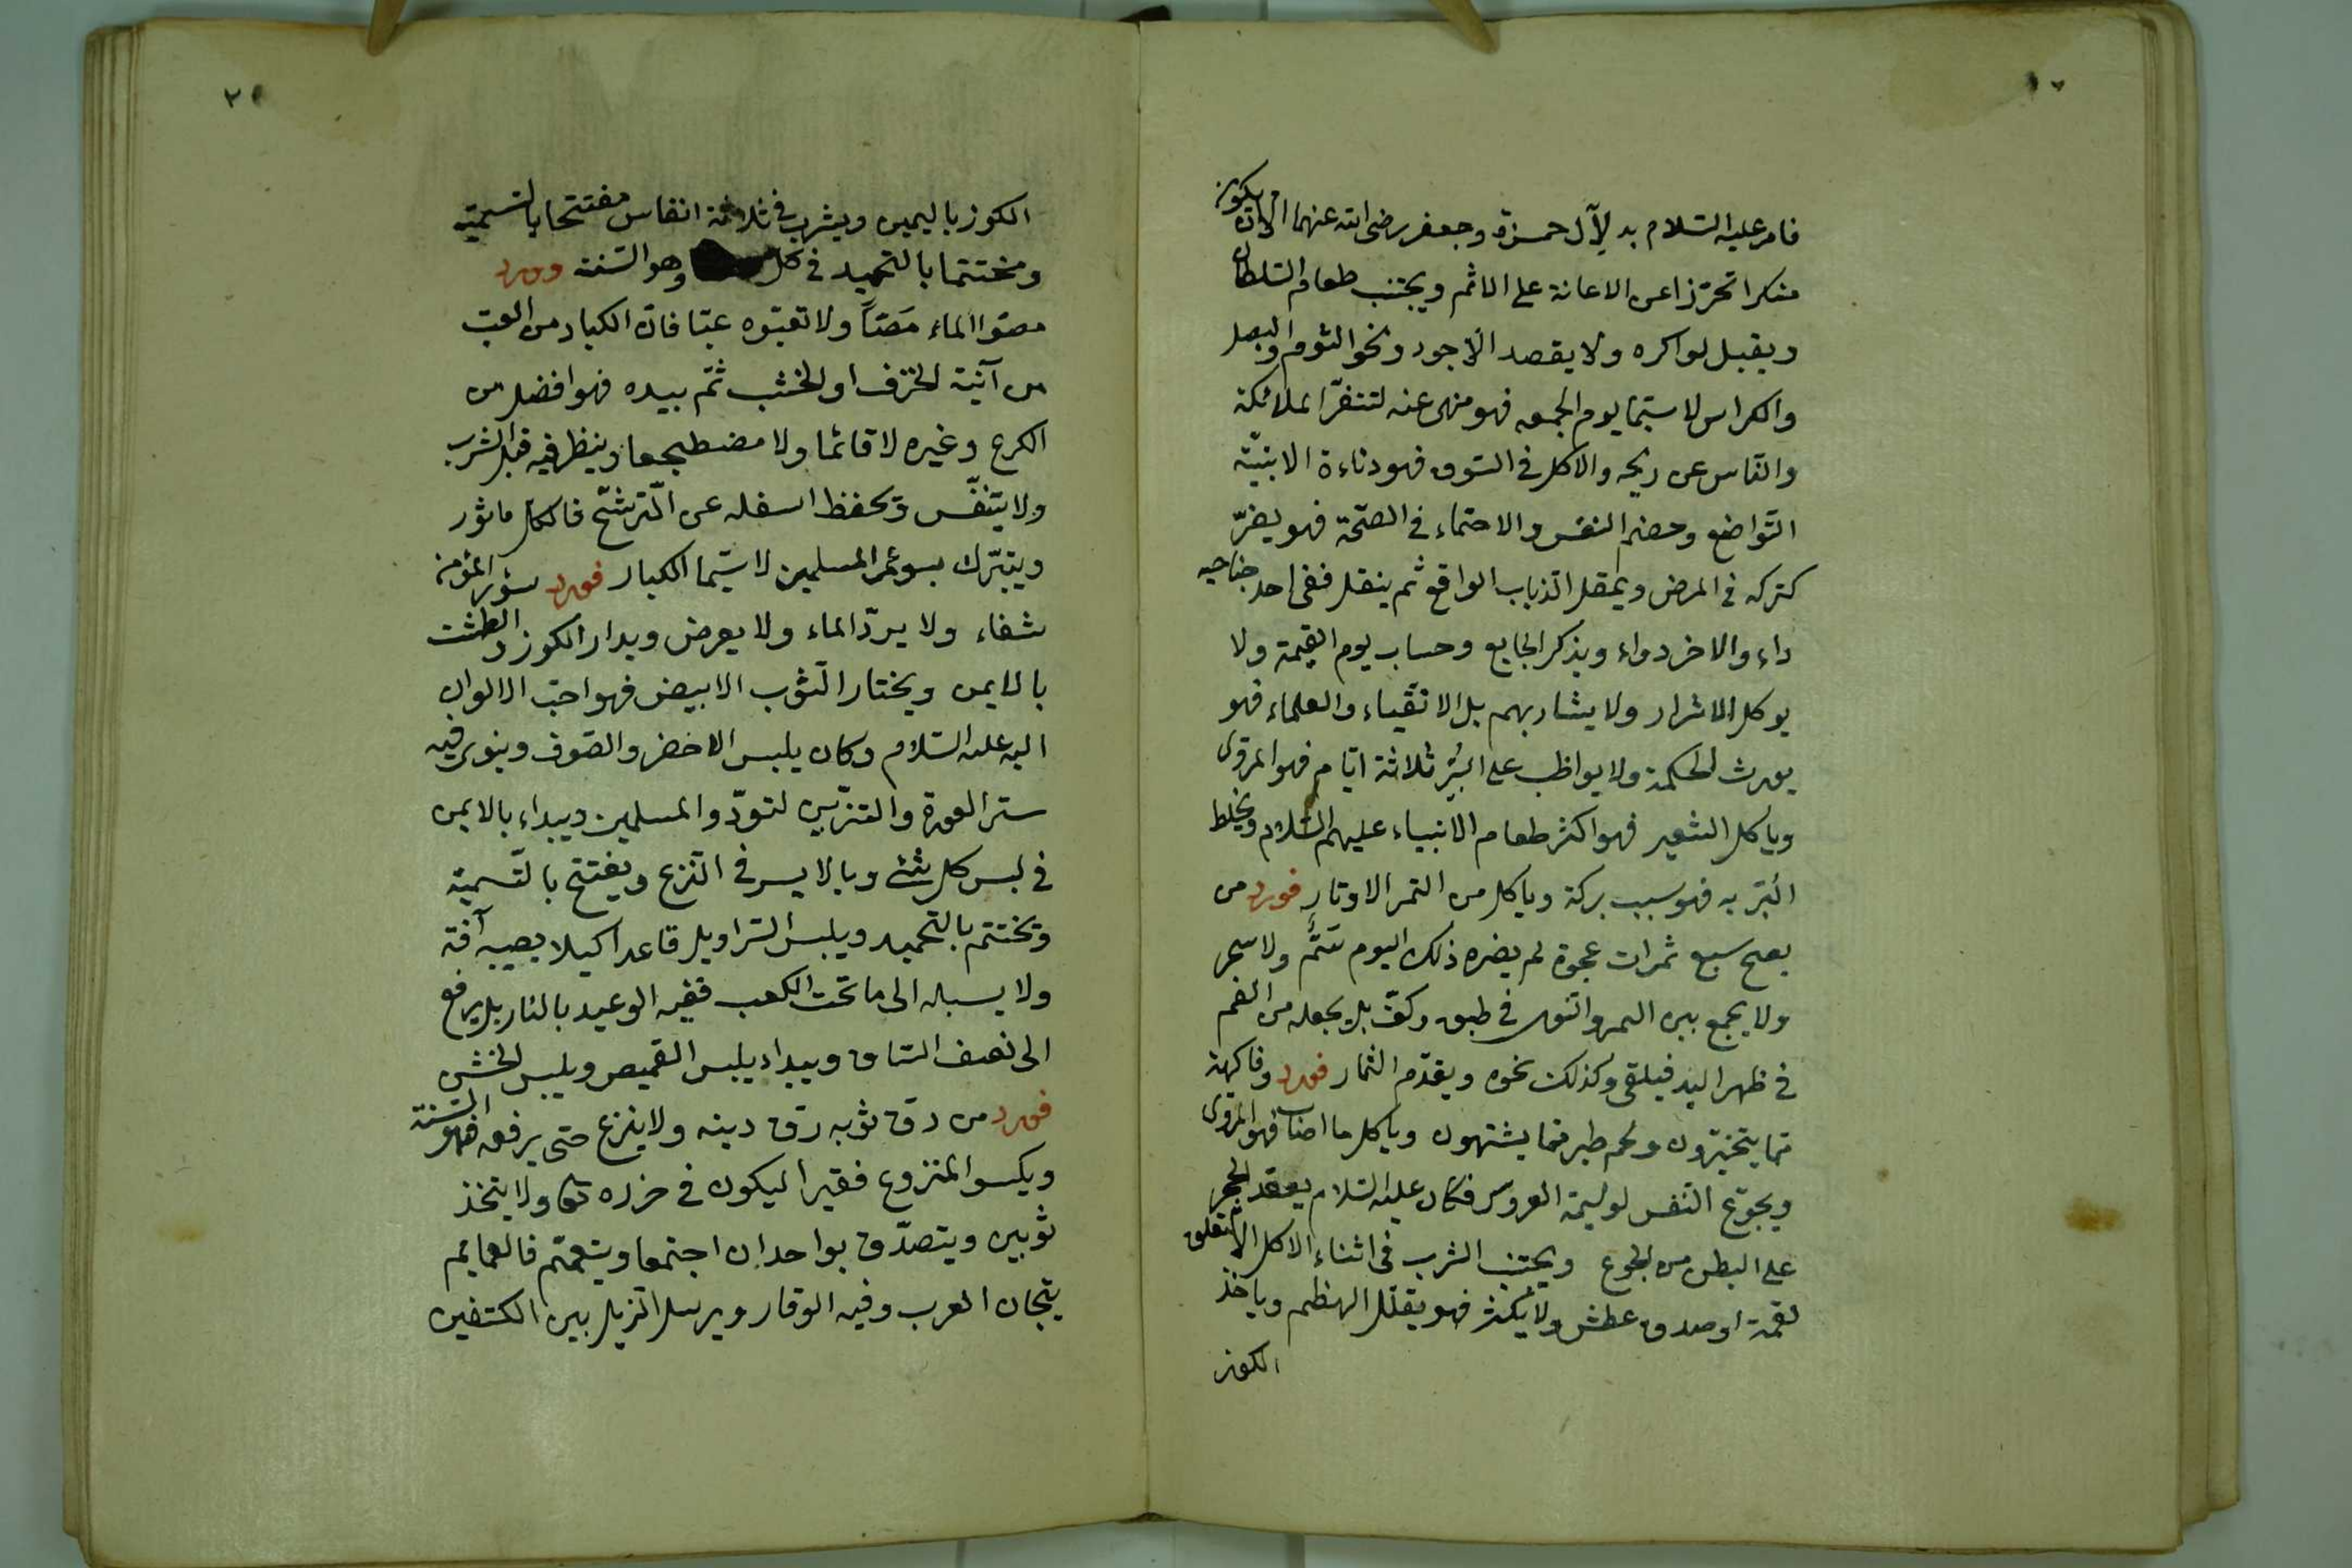 فامر عليه السلام به لآل حمزة وجعفر رضى الله عنهما الا ان يكون
منكرا تحرّزا عن الاعانة على الاثم ويجتنب طعام السلطان
ويقبل لو اكره ولا يقصد الاجود ونحو الثوم والبصل
والكراس لا سيّما يوم الجمعه فهو منهى عنه لتنفّر الملائكة
والناس عن ريحه والاكل فى السوق فهو دناءة الا بنيّة
التّواضع وهضم النفس والاحتماء فى الصّحّة فهو يضرّ
كتركه فى المرض ويمقل الذباب الواقع ثم ينقل ففى احد جناحيه
داء والاخر دواء ويذكر الجايع وحساب يوم القيمة ولا
يوكل الاشرار ولا يشاربهم بل الاتقياء والعلماء فهو
يورث الحكمة ولا يواظب على البُرّ ثلاثة ايّام فهو المروى
وياكل الشعير فهو اكثر طعام الانبياء عليهم السّلام ويخلط
البّر به فهو سبب بركة وياكل من التمر الاوتار فورد من
يصبح سبع ثمرات عجوة لم يضره ذلك اليوم سَمٌّ ولا سحر
ولا يجمع بين التمر والنوى فى طبق وكفّ بل يجعله من الفم
فى ظهر اليد فيلقى وكذلك نحوه ويقدّم الثمار فورد وفاكهة
ممّا يتخيّرون ولحم طير ممّا يشتهون وياكل ما اصاب فهو المروى
ويجوّع النّفس لوليمة العروس فكان عليه السلام يعقد الحجر
على البطن من الجوع ويجتنب الشرب فى اثناء الاكل الا لتعلق
لقمة او صدق عطش ولا يكثر فهو يقلّل الهظم وياخذ
الكوز
٢١
الكوز باليمين ويشرب فى ثلاثة انفاس مفتتحا بالتسميّة
ومختتما بالتحميد فى كل وهو السّنة وورد
مصّوا الماء مَصّاً ولا تعبّوه عبّا فانّ الكباد من العبّ
من آنية الخزف او الخشب ثمّ بيده فهو افضل من
الكرع وغيره لا قائما ولا مضطجعا وينظر فيه قبل الشرب
ولا يتنفّس ويحفظ اسفله عن التّرشّح فالكلّ ماثور
ويتبرّك بسوءر المسلمين لا سيّما الكبار فورد سؤر المؤمن
شفاء ولا يردّ الماء ولا يعرض ويدار الكوز والطشت
بالايمن ويختار الثّوب الابيض فهو احبّ الالوان
اليه عليه السّلام وكان يلبس الاخضر والصّوف وينوى فيه
ستر العورة والتزيّين لتودّد المسلمين ويبداء بالايمن
فى لبس كل شئ وبالايسر فى النّزع ويفتتح بالتّسمية
ويختتم بالتّحميد ويلبس السّراويل قاعدا كيلا يصيبه آفة
ولا يسبله الى ما تحت الكعب ففيه الوعيد بالنار بل يرفع
الى نصف السّاق ويبداء يلبس القميص ويلبس الخشن
فورد من رق ثوبه رق دينه ولا ينزع حتى يرقعه فهو السّنة
ويكسو المنزوع فقيرا ليكون فى حرزه تعا ولا يتخذ
ثوبين ويتصدّق بواحد ان اجتمعا ويتعمّم فالعمايم
تيجان العرب وفيه الوقار ويرسل الذيل بين الكتفين